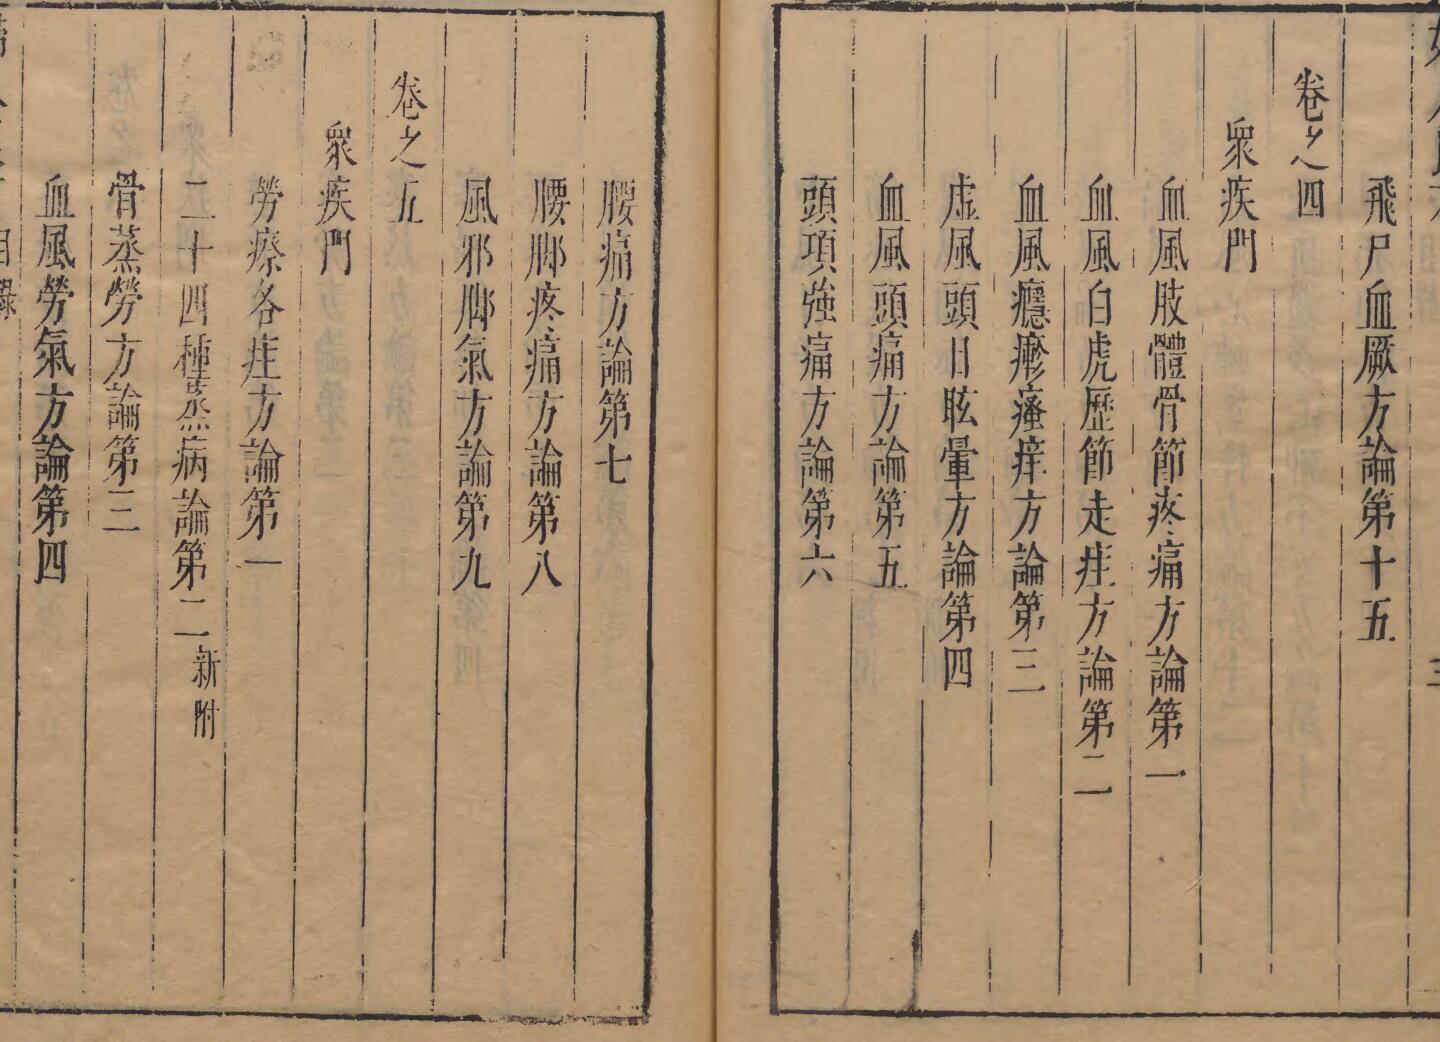 飛尸血厥方論第十五
卷之四
衆疾門
血風肢體骨節疼痛方論第一
血風白虎歷節走疰方論第二
血風癮瘮瘙痒方論第三
虛風頭目眩暈方論第四
血風頭痛方論第五
頭項強痛方論第六
腰痛方論第七
腰脚疼痛方論第八
風邪脚氣方論第九
卷之五
衆疾門
勞瘵各疰方論第一
二十四種蒸病論第二新附
骨蒸勞方論第三
血風勞氣方論第四